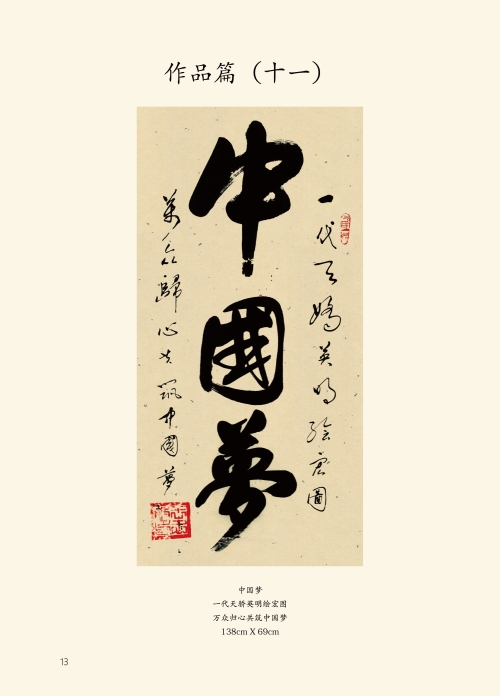 作品篇（十一）
一代天嬌英明绘宏圖
中國夢
萬众歸心共筑中國夢
中国梦
一代天骄英明绘宏图
万众归心共筑中国梦
138cm X 69cm
13